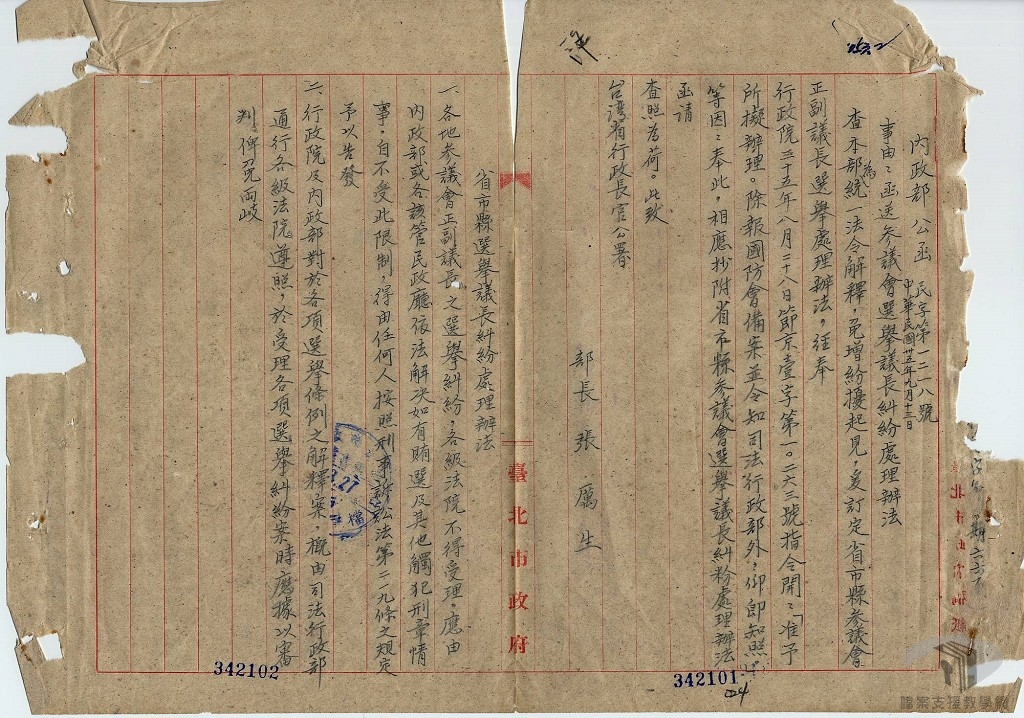 內政部公函 民字第一二一八號
中華民國卅五年九月十三日
事由：函送參議會選舉議長糾紛處理辦法
查本部為統一法令解釋，免增紛擾起見，爰訂定省市縣參議會
正副議長選舉處理辦法，経奉
行政院三十五年八月二十八日節京壹字第一〇二六三號指令開：「准予
所擬辦理。除報國防會備案並令知司法行政部外，仰即知照」
等因：奉此，相應抄附省市縣參議會選舉議長糾粉處理辦法
函请
查照為荷。此致
台湾省行政長官公署
部長 張厲生
省市縣選舉議長糾紛處理辦法
一、各地參議會正副議長之選舉糾紛，各級法院不得受理，應由
內政部或各該管民政廳依法解决如有賄選及其他觸犯刑章情
事，自不受此限制，得由任何人按照刑事訴訟法第二一九條之規定
予以告發
二、行政院及內政部對於各項選舉條例之解釋案，概由司法行政部
通行各級法院遵照，於受理各項選舉糾紛案時應據以審
判，俾免兩歧
臺北市政府
27
檔
342102
342101
檔案支援教學網